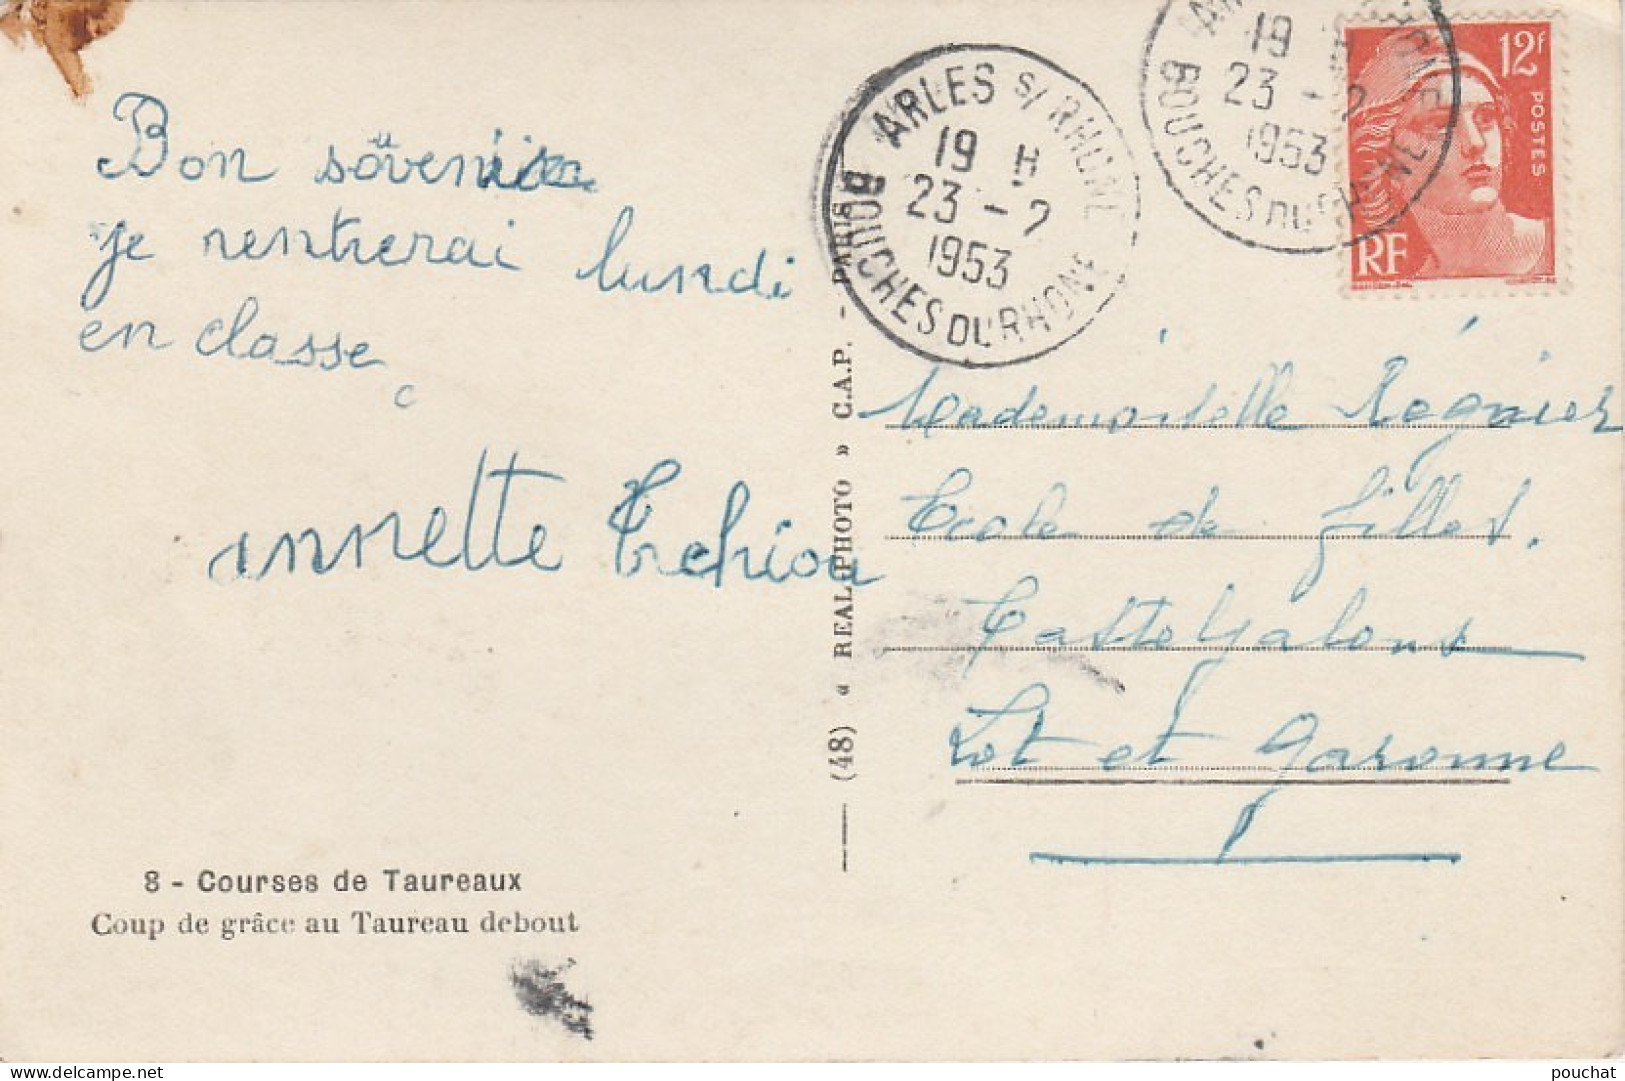 Bon souvenir
je rentrerai lundi
en classe
annette Tchiou
8 - Courses de Taureaux
Coup de grâce au Taureau debout
(48) « REAL-PHOTO » C.A.P. - PARIS
ARLES S/ RHONE
19 H
23 - 2
1953
BOUCHES DU RHONE
19 H
23 - 2
1953
BOUCHES DU RHONE
12F
POSTES
RF
Mademoiselle Régnier
Ecole de filles.
Casteljaloux
Lot et Garonne
pouchat